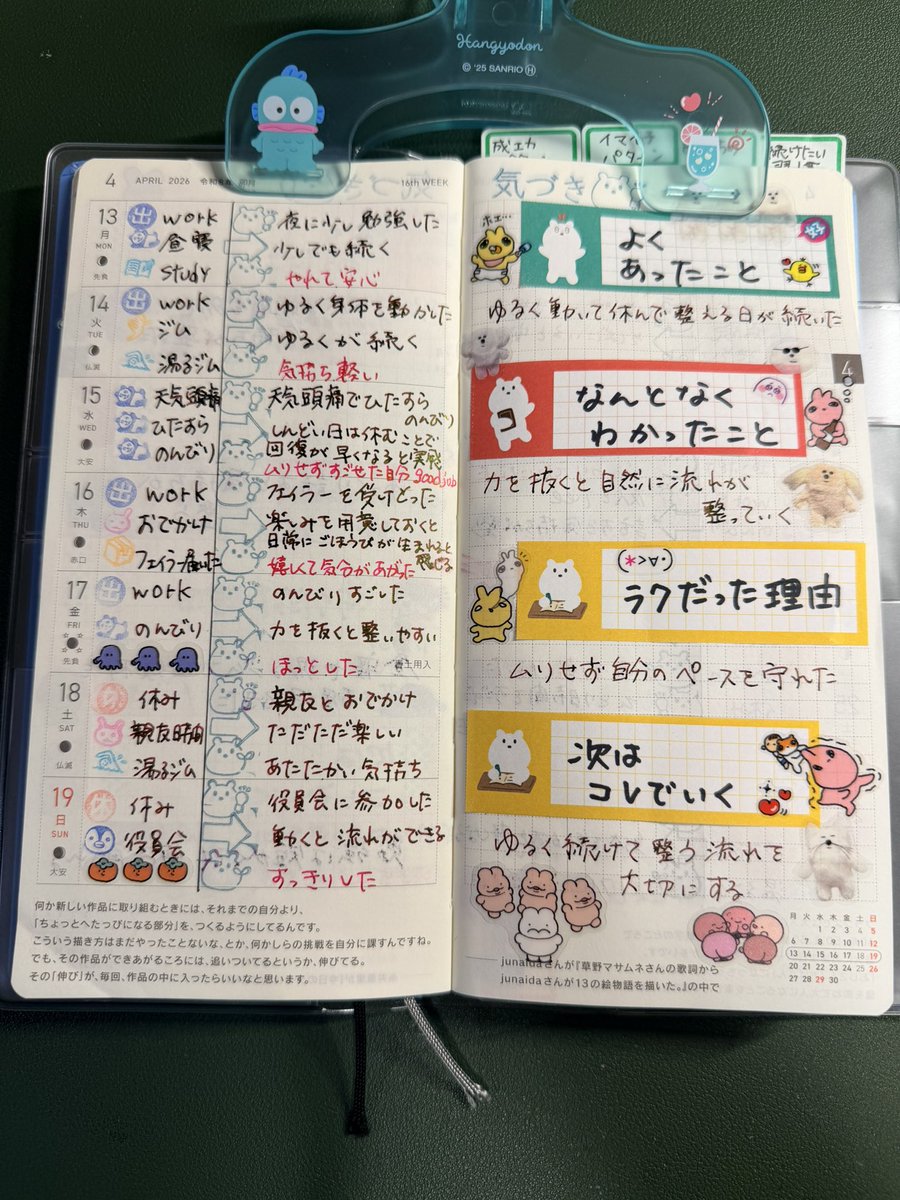 Hangyodon
© '25 SANRIO Ⓗ
成功
イマイチ
パターン
続けたい
4 APRIL 2026 令和8年 卯月 16th WEEK
13
月
MON
先負
出 work
昼寝
study
夜に少し勉強した
少しでも続く
やれて安心
14
火
TUE
仏滅
出 work
ジム
湯るジム
ゆるく身体を動かした
ゆるくが続く
気持ち軽い
15
水
WED
大安
天気頭痛
ひたすら
のんびり
天気頭痛でひたすら
のんびり
しんどい日は休むことで
回復が早くなると実感
ムリせずすごせた自分good job
16
木
THU
赤口
出 work
おでかけ
フェイラー届いた
フェイラーを受けとった
楽しみを用意しておくと
日常にごほうびが生まれると
感じる
嬉しくて気分があがった
17
金
FRI
先負
出 work
のんびり
のんびりすごした
力を抜くと整いやすい
ほっとした
春土用入
18
土
SAT
仏滅
休み
親友時間
湯るジム
親友とおでかけ
ただただ楽しい
あたたかい気持ち
19
日
SUN
大安
休み
役員会
役員会に参加した
動くと流れができる
すっきりした
何か新しい作品に取り組むときには、それまでの自分より、
「ちょっとへたっぴになる部分」を、つくるようにしてるんです。
こういう描き方はまだやったことないな、とか、何かしらの挑戦を自分に課すんですね。
でも、その作品ができあがるころには、追いついてるというか、伸びてる。
その「伸び」が、毎回、作品の中に入ったらいいなと思います。
気づき
ホエ…
よく
あったこと
ゆるく動いて休んで整える日が続いた
4
なんとなく
わかったこと
力を抜くと自然に流れが
整っていく
(*>∀･)
ラクだった理由
ムリせず自分のペースを守れた
次は
コレでいく
ゆるく続けて整う流れを
大切にする
junaidaさんが『草野マサムネさんの歌詞から
junaidaさんが13の絵物語を描いた。』の中で
月 火 水 木 金 土 日
1 2 3 4 5
6 7 8 9 10 11 12
13 14 15 16 17 18 19
20 21 22 23 24 25 26
27 28 29 30